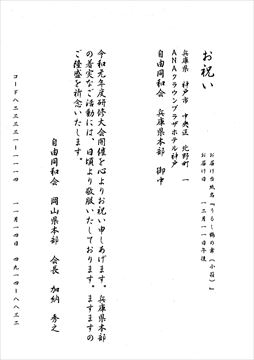 お祝い
お届け台紙名『うるし鶴の舞(小菊)』
お届け日 一二月一一日午後
兵庫県 神戸市 中央区 北野町 一
ANAクラウンプラザホテル神戸
自由同和会 兵庫県本部 御中
令和元年度研修大会開催を心よりお祝い申しあげます。兵庫県本部
の着実なご活動には、日頃より敬服いたしております。ますますの
ご隆盛を祈念いたします。
自由同和会 岡山県本部 会長 加納 秀之